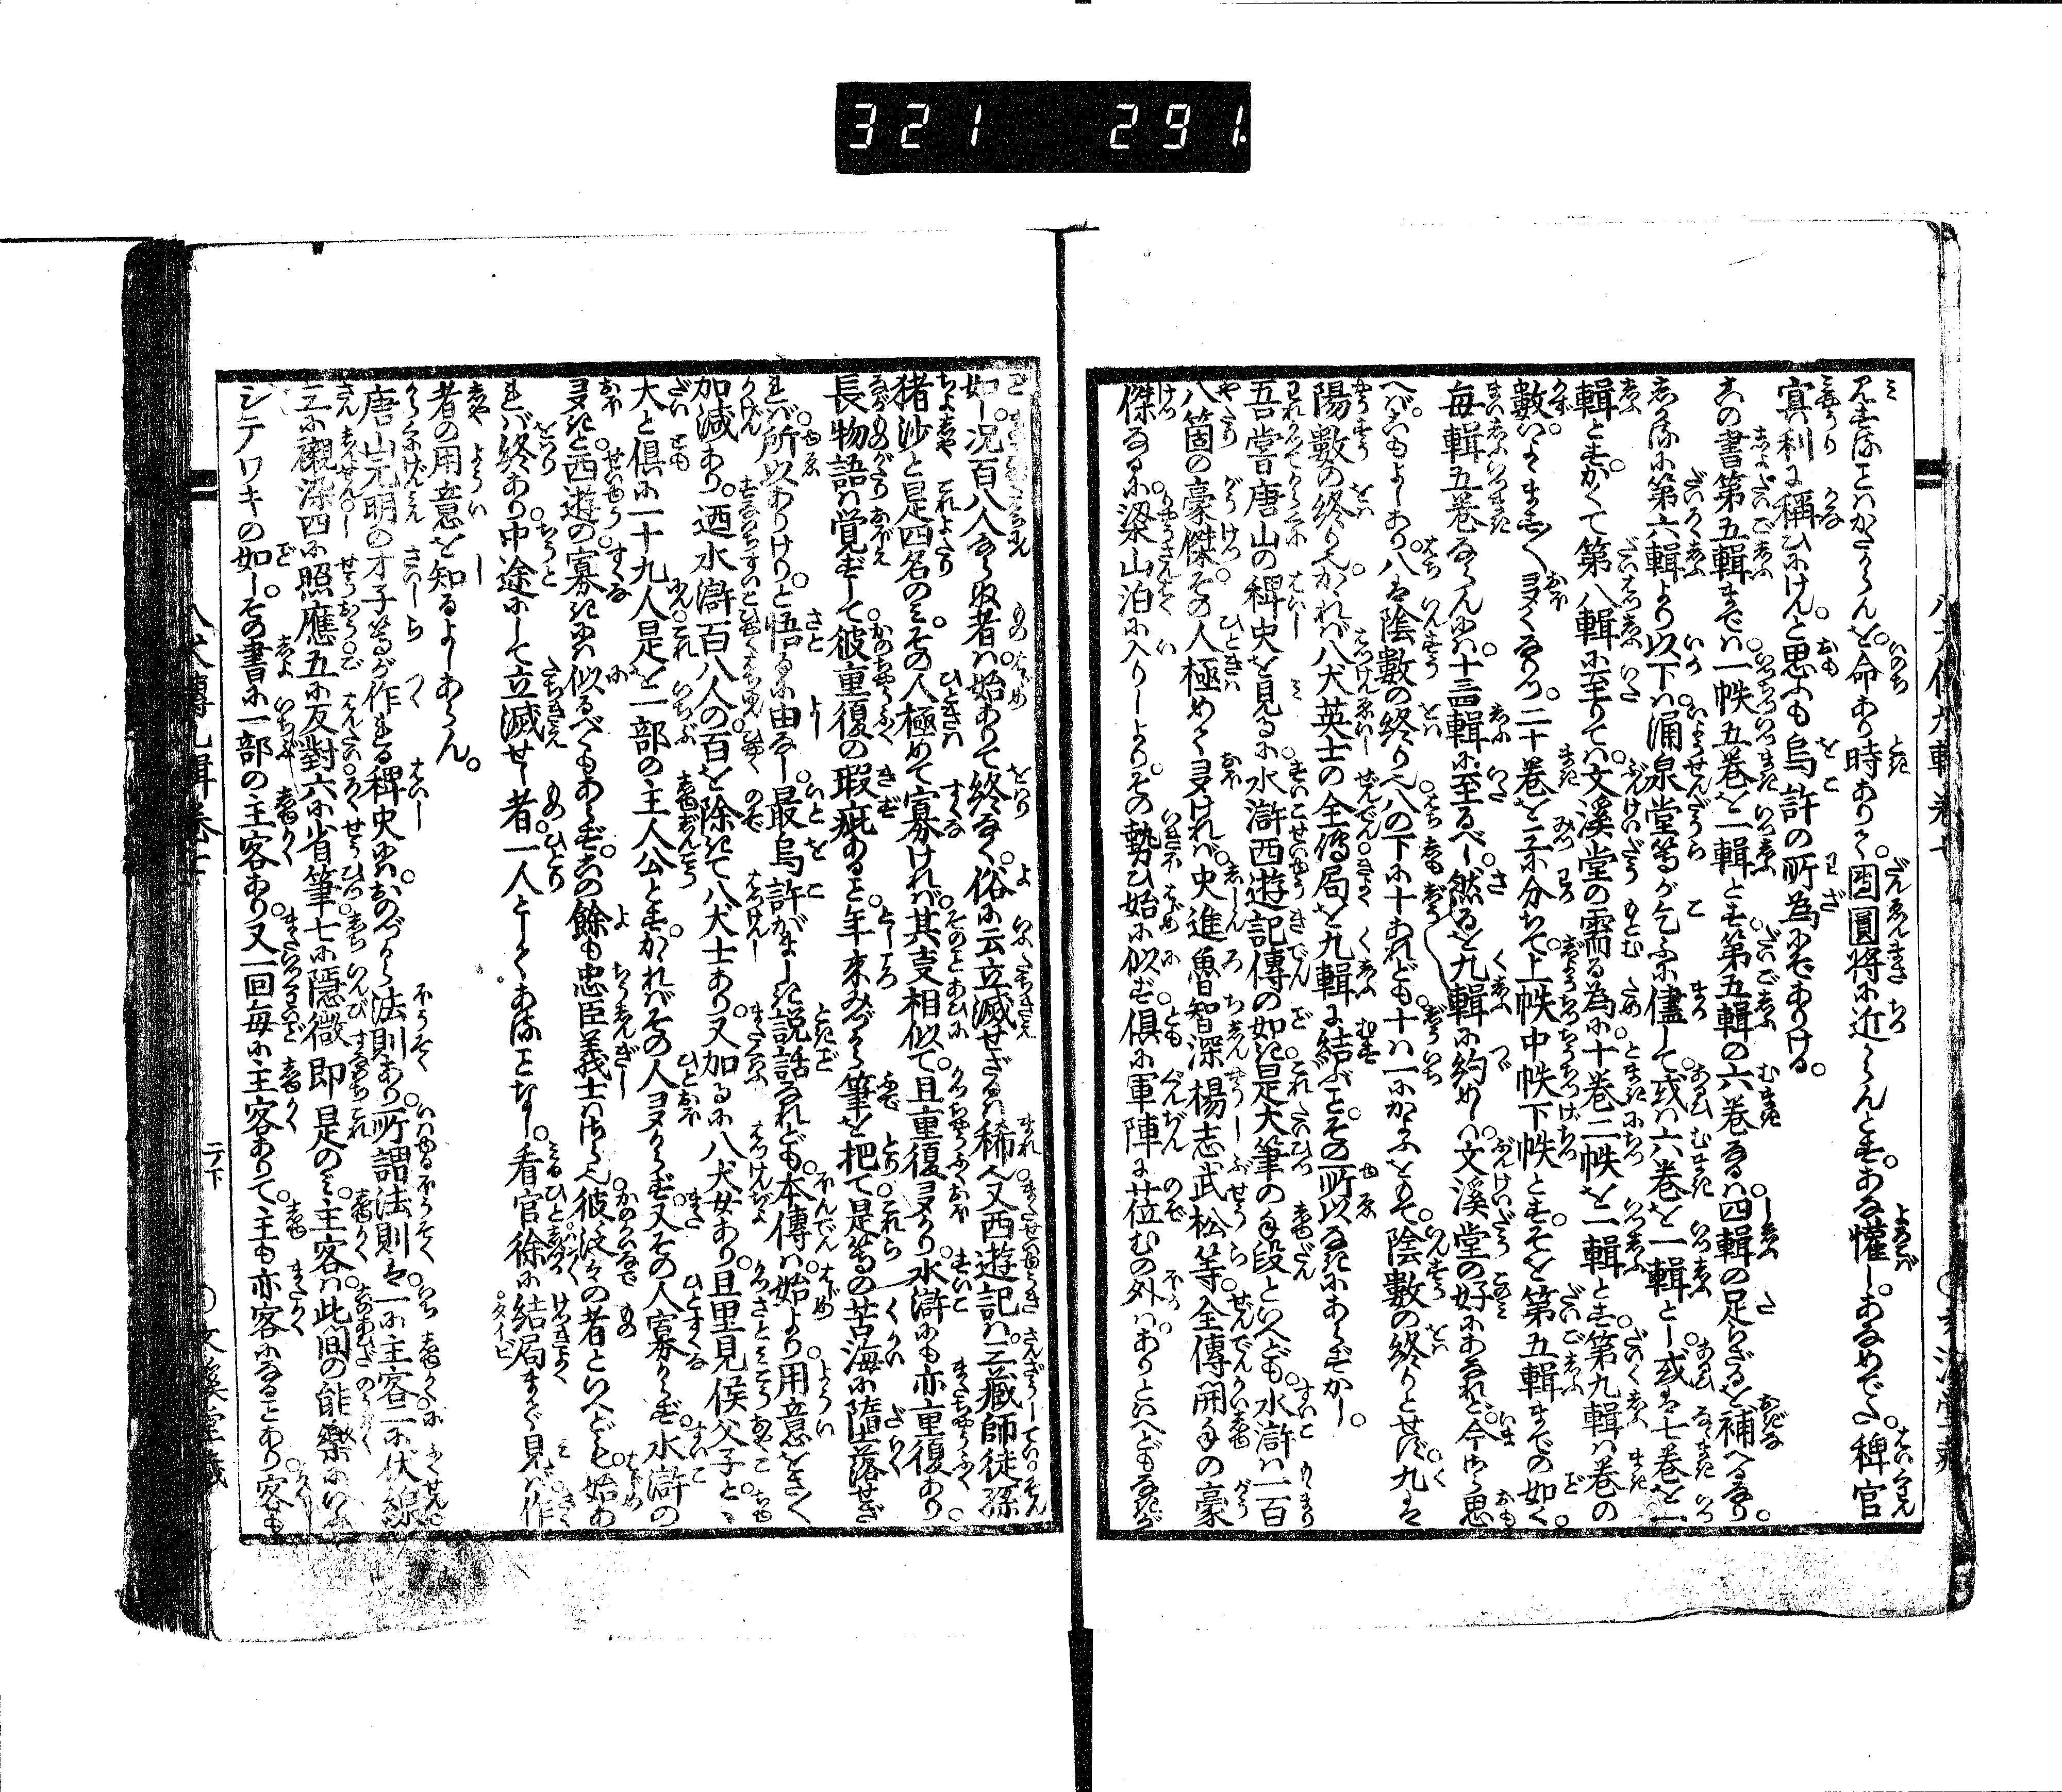 321 291
見することはかたからんを。命あり時ありて。団圓將に近からんとす。ある懽し。あなめでた。稗官
冥利に稱ひにけんと思ふも烏許の所為にぞありける。
この書第五輯までは。一帙五巻を一輯とす。第五輯の六巻なるは。四輯の足らざるを補へるなり。
しかるに第六輯より以下は。涌泉堂等が乞ふに儘して。或は六巻を一輯とし。或は七巻を一
輯とす。かくて第八輯に至りては。文溪堂の需る為に。十巻二帙を一輯とす。第九輯は巻の
數。いよますます多くなりつ。二十巻を三に分ちて。上帙中帙下帙とす。そを第五輯までの如く。
毎輯五巻ならんには。十三四輯に至るべし。然るを九輯に約めしは。文溪堂の好にあなれど。今さら思
へば。こもよしあり。八は陰數の終り也。八の下に十あれども。十は一にかよふをもて。陰數の終りとせず。九は
陽數の終り也。かかれば八犬英士の全傳局を。九輯に結ぶこと。その所以なきにあらずかし。
吾嘗唐山の稗史を見るに。水滸西遊記傳の如き。是大筆の手段といへども。水滸は一百
八箇の豪傑。その人極めて多ければ。史進魯智深楊志武松等。全傳開手の豪
傑なるに。梁山泊に入りしより。その勢ひ始に似ず。倶に軍陣に莅むの外は。ありといへどもなきが
如し。况百八人ならぬ者は。始ありて終なく。俗に云立滅せざるは稀也。又西遊記は。三藏師徒孫
猪沙と是四名のみ。その人極めて寡ければ。其事相似て且重復多かり。水滸にも亦重復あり。
長物語は覚ずして。彼重復の瑕疵あること。年來みづから筆を把て。是等の苦海に墮落せざ
れば。所以ありけりと悟るに由なし。最烏許がましき説話なれども。本傳は始より。用意をさく
加減あり。迺水滸百八人の。百を除きて八犬士あり。又加るに八犬女あり。且里見侯父子と丶
大と倶に一十九人。是を一部の主人公とす。かかればその人多からず。又その人寡からず。水滸の
多きと。西遊の寡きには似るべくもあらず。この餘も忠臣義士はさら也。彼泛々の者といへども。始あ
れば終あり。中途にして立滅せし者。一人としてあることなし。看官徐に結局まで見ば。作
者の用意を知るよしあらん。
唐山元明の才子等が作れる稗史には。おのづから法則あり。所謂法則は。一に主客二に伏線
三に襯染四に照應五に反對六に省筆七に隱微即是のみ。主客は此間の能樂にいふ
シテワキの如し。その書に一部の主客あり。又一回毎に主客ありて。主も亦客になることあり。客も
八犬傳九輯巻七
二ノ下
文溪堂藏